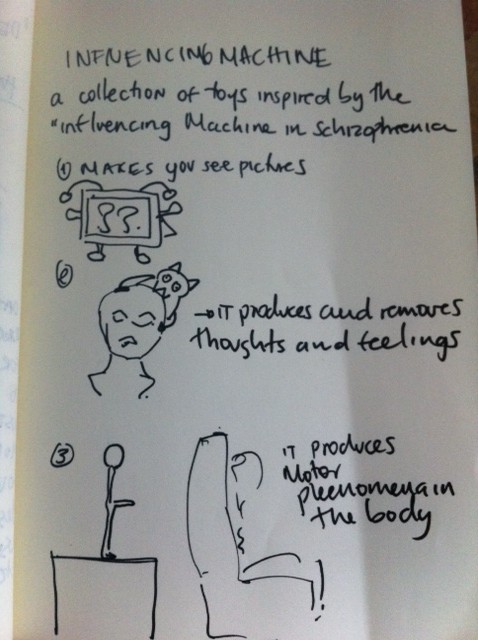 INFNENCING MACHINE
a collection of toys inspired by the
"influencing Machine in Schizophrenia
(1) MAKES you see pictures
??.
②
→ IT produces and removes
thoughts and feelings
③
IT produces
Motor
pheenomena in
the body